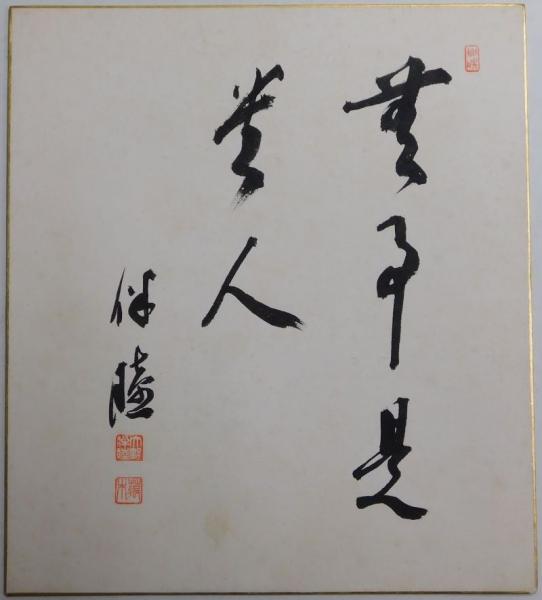 無事是
貴人
伴睦